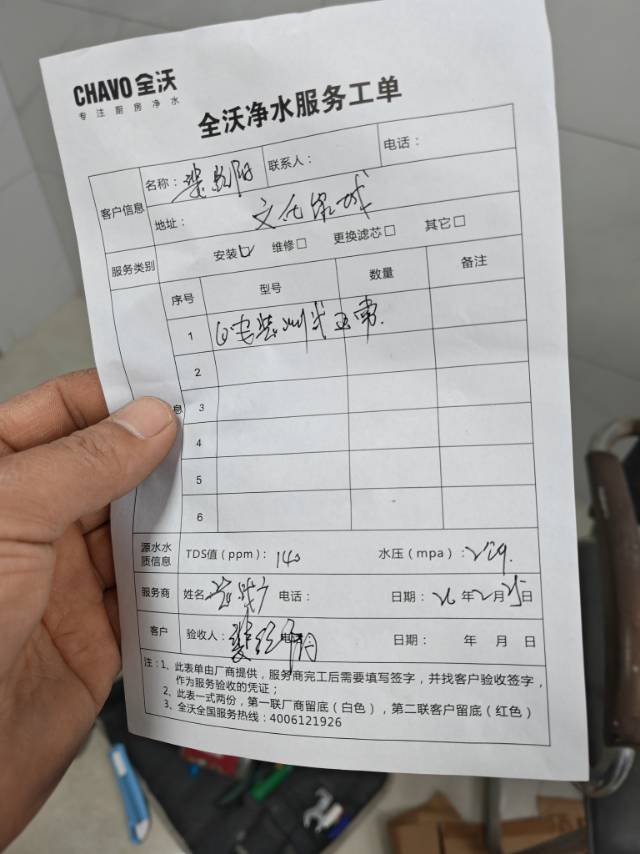 CHAVO 全沃
专注厨房净水
全沃净水服务工单
客户信息 名称： 联系人： 电话：
地址：
服务类别 安装☑ 维修□ 更换滤芯□ 其它□
序号 型号 数量 备注
1 安装调试正常.
2
息 3
4
5
6
源水水质信息 TDS值（ppm）：140 水压（mpa）：
服务商 姓名 电话： 日期：26年2月25日
客户 验收人： 日期： 年 月 日
注：1、此表单由厂商提供，服务商完工后需要填写签字，并找客户验收签字，
作为服务验收的凭证；
2、此表一式两份，第一联厂商留底（白色），第二联客户留底（红色）
3、全沃全国服务热线：4006121926